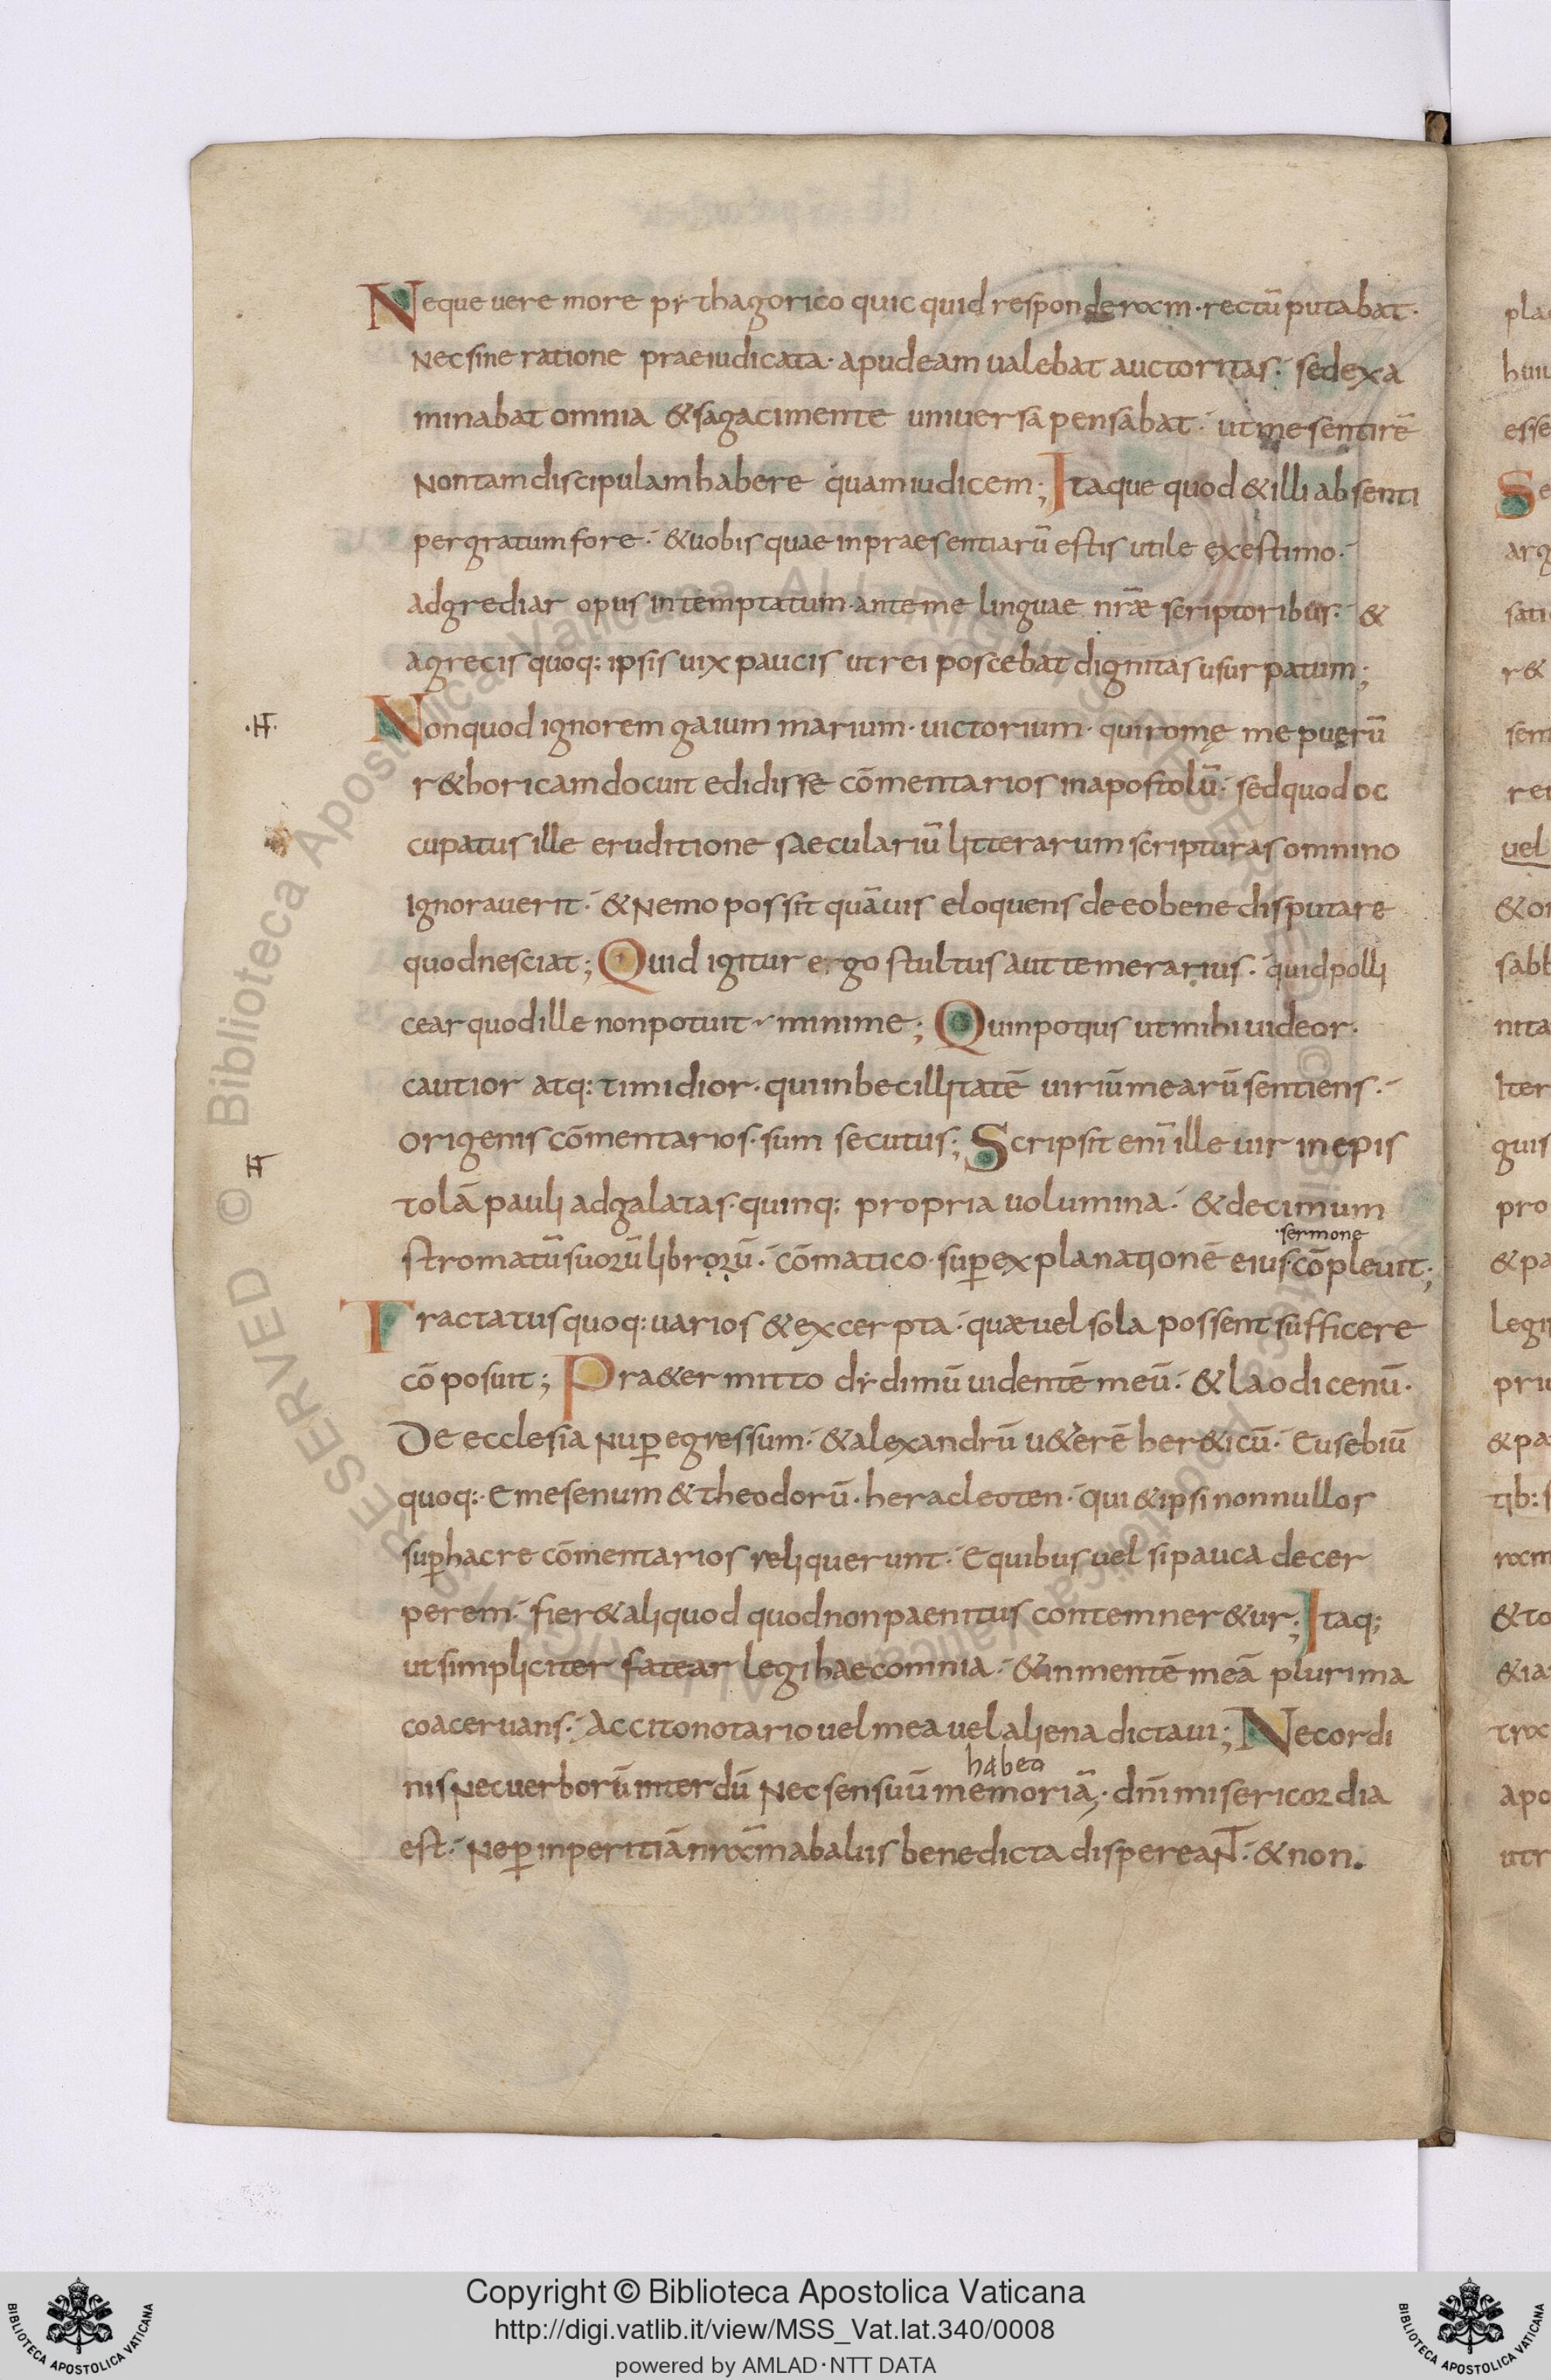 Neque uere more pẏthagorico quic quid responderam · rectū putabat ·
Nec sine ratione praeiudicata · apud eam ualebat auctoritas · sed exa
minabat omnia & sagaci mente uniuersa pensabat · ut me sentirē
Non tam discipulam habere quam iudicem ; Itaque quod & illi absenti
pergratum fore · & uobis quae in praesentiarū estis utile exestimo ·
adgrediar opus intemptatum · ante me linguae nr̄ae scriptoribus · &
a grecis quoq: ipsis uix paucis ut rei poscebat dignitas usurpatum ;
·H·
Non quod ignorem gaium marium · uictorium · qui romę me puerū
r&horicam docuit edidisse cōmentarios in apostolū · sed quod oc
cupatus ille eruditione saeculariū litterarum scripturas omnino
Ignorauerit · & Nemo possit quāuis eloquens de eo bene disputare
quod nesciat ; Quid igitur ergo stultus aut temerarius · quid polli
cear quod ille non potuit minime ; Quin potius ut mihi uideor ·
cautior atq: timidior · qui inbecillitatē uiriū mearū sentiens ·
origenis cōmentarios · sum secutus ; Scripsit enī ille uir in epis
H
tolā pauli ad galatas · quinq; propria uolumina · & decimum
· sermone
stromatū suorū librorū · cōmatico · sup explanationē eius · cōpleuit ;
Tractatus quoq: uarios & excerpta · quæ uel sola possent sufficere
cō posuit ; Pra&er mitto dẏdimū uidentē meū · & laodicenū ·
De ecclesia Nup egressum · & alexandrū u&erē her&icū · Eusebiū
quoq: · Emesenum & theodorū · heracleoten · qui & ipsi nonnullos
sup hac re cōmentarios reliquerunt · E quibus uel si pauca decer
perem · fier& aliquod quod non paenitus contemner&ur ; Itaq;
ut simpliciter fatear legi haec omnia · & in mentē meā plurima
coaceruans · Accito notario uel mea uel aliena dictaui ; Nec ordi
habeo
nis Nec uerborū interdū Nec sensuū memoriā · dn̄i misericordia
est · Ne p inperitiā nram ab aliis bene dicta dispereaNT · & non .
pla
huiu
esse
Se
arg
sati
r&
sem
rer
uel
& or
sabb
nita
Iter
guis
pro
& pa
legi
priu
& pa
tib: s
ram
& to
& ia
trac
apo
utr
© Biblioteca Apostolica Vaticana ALL RIGHTS RESERVED
Copyright © Biblioteca Apostolica Vaticana
http://digi.vatlib.it/view/MSS_Vat.lat.340/0008
powered by AMLAD·NTT DATA
BIBLIOTECA APOSTOLICA VATICANA
BIBLIOTECA APOSTOLICA VATICANA